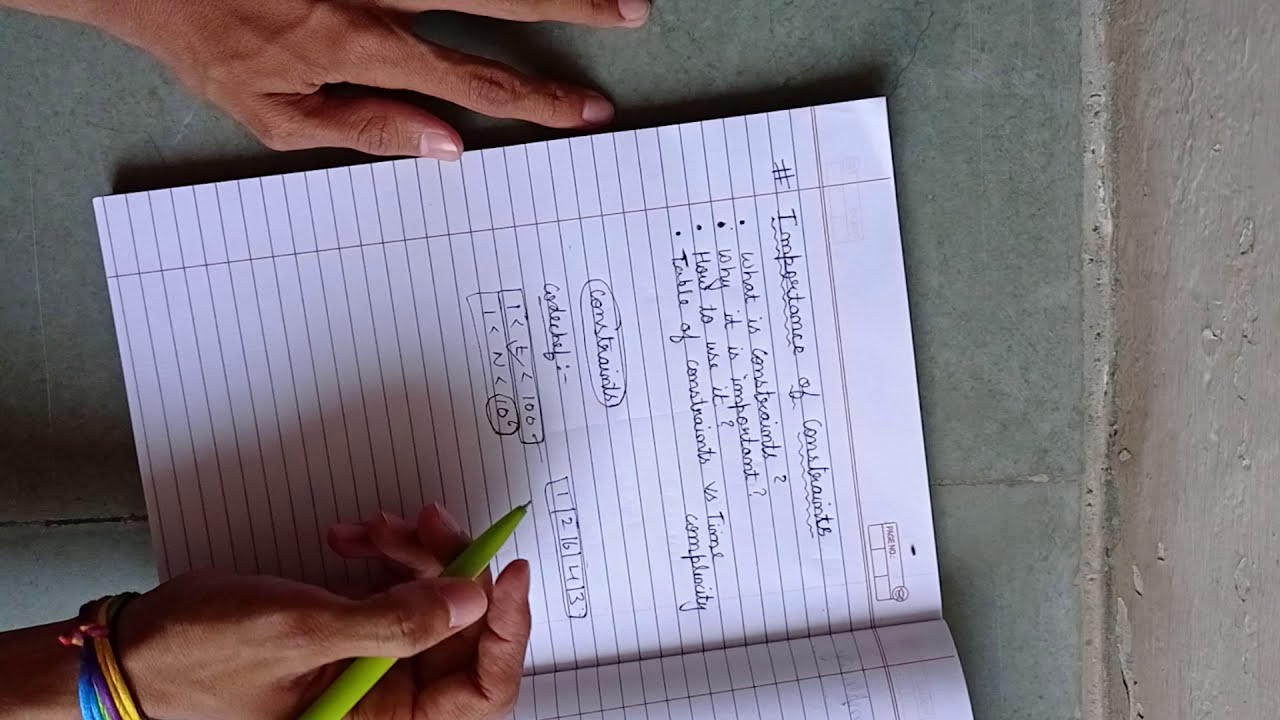 PAGE NO.:
# Importance of Constraints
• What is constraints ?
• Why it is important ?
• How to use it ?
• Table of constraints vs Time
complexity
constraints
codechef :-
1 | 2 | 6 | 4 | 3
1 < t < 100
1 < N <